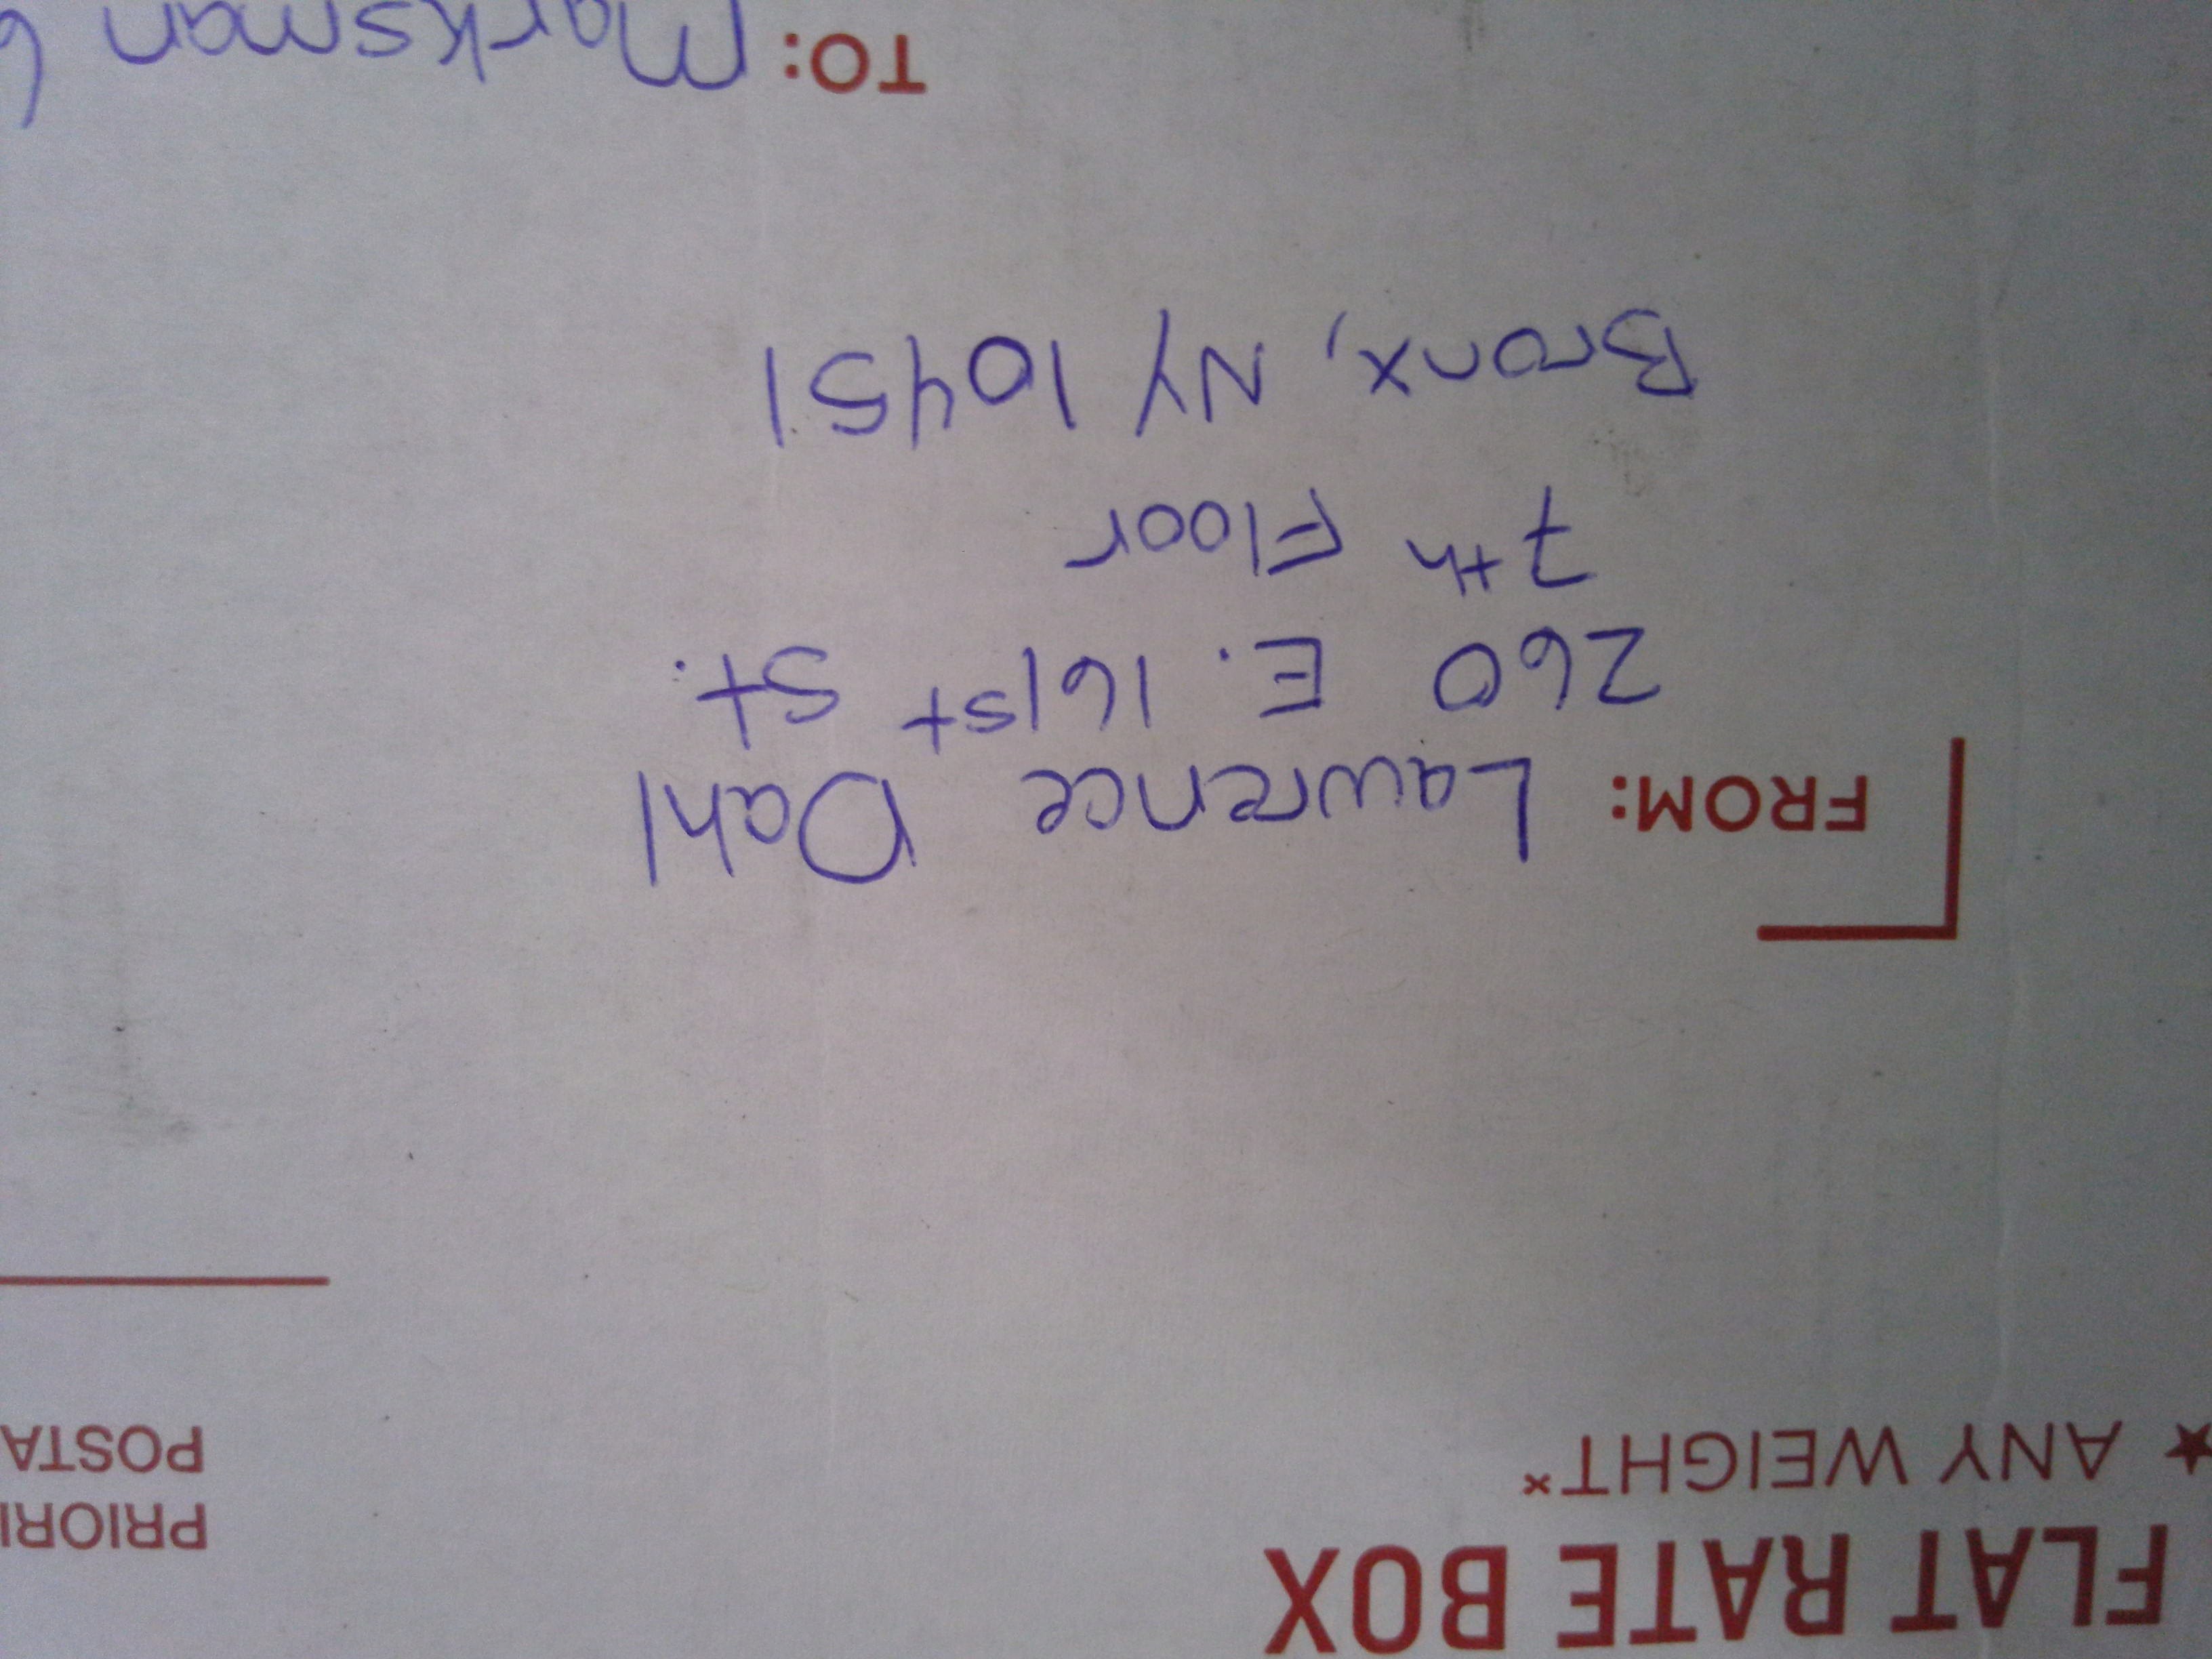 FLAT RATE BOX
★ ANY WEIGHT*
PRIORI
POSTA
FROM: Lawrence Dahl
260 E. 161st St.
7th Floor
Bronx, NY 10451
TO: Marksman